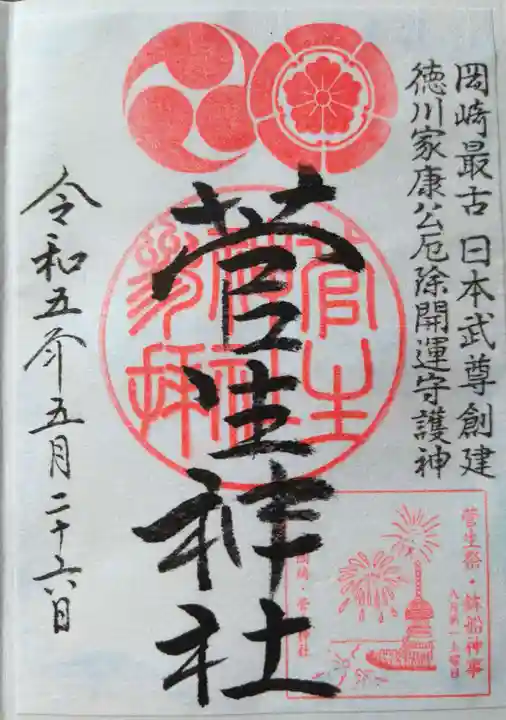 岡崎最古 日本武尊創建
徳川家康公厄除開運守護神
菅生神社
菅生祭・鉾船神事
八月第一土曜日
岡崎・菅生神社
令和五年五月二十六日